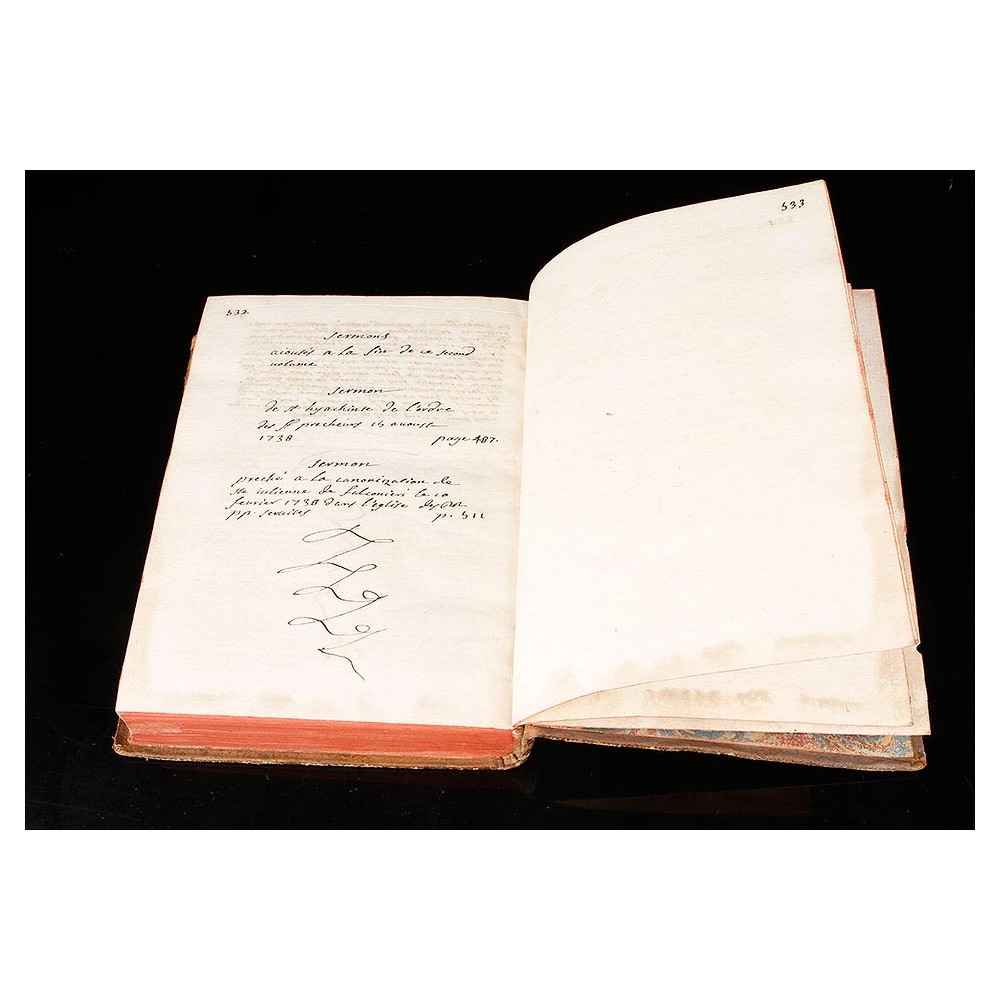 532
sermons
aioutés a la fin de ce second
volume
sermon
de st hyachinte de l'ordre
des ff precheurs 15 aoust
1738 page 487.
sermon
preché a la canonization de
ste iulienne de falconieri le 10
fevrier 1738 dans l'eglise des RR
pp. servites p. 511
533